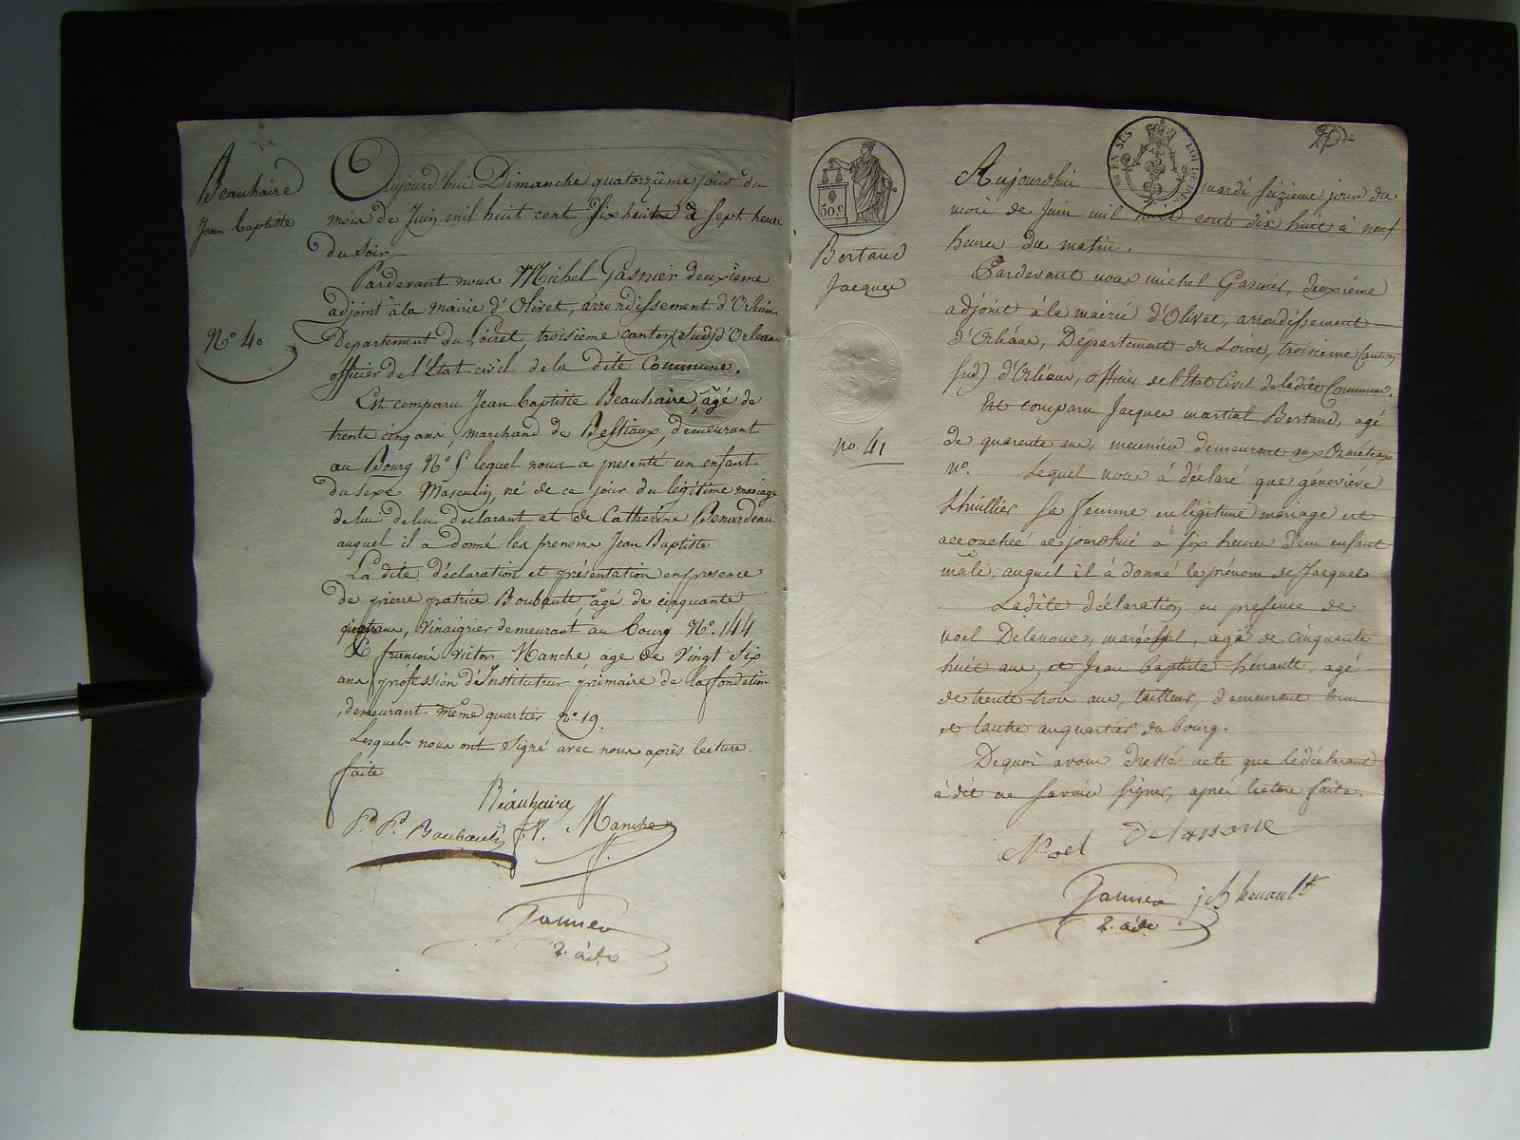 Beauhaire
Jean baptiste
N.° 40
Aujourd'hui Dimanche quatorzième jour du
mois de Juin mil huit cent Dix huit à Sept heure
du Soir
Pardevant nous Michel Gasnier deuxième
adjoint à la mairie d'Olivet, arrondissement d'Orléans
Département du Loiret, troisième canton (Sud) d'Orléans
officier de l'État civil de la dite Commune.
Est comparu Jean baptiste Beauhaire, âgé de
trente cinq ans, marchand de Bestiaux, demeurant
au Bourg N.° lequel nous a presenté un enfant
du sexe Masculin, né de ce jour du légitime mariage
de lui declarant et de Catherine Renardeau
auquel il a donné les prenoms Jean Baptiste
La dite déclaration et présentation en presence
de pierre patrice Boubault, âgé de cinquante
ans, Vinaigrier demeurant au bourg N.° 144
françois victor Manche age de Vingt Six
ans profession d'Instituteur primaire de la fondation
demeurant même quartier n.° 19.
Lesquels nous ont signé avec nous après lecture
faite
Beauhaire
P. P. Boubault f. V. Manche
Gasnier
2. adt
50 c
Bertaud
Jacques
no. 41
Aujourdhui mardi seizieme jour du
mois de Juin mil huit cent dix huit à neuf
heures du matin.
Pardevant nous michel Gasnier, deuxieme
adjoint à la mairie d'Olivet, arrondissement
d'Orléans, Département du Loiret, troisieme canton
(sud) d'Orléans, officier de l'État Civil de la dite Commune.
Est comparu Jacques martial Bertaud, agé
de quarente ans, meunier demeurant aux
n.° Lequel nous à déclaré que généviéve
Lhuillier sa femme en légitime mariage est
accouchée ce jourdhui à six heures d'un enfant
mâle, auquel il à donné le prénom de Jacques
Ladite déclaration en presence de
noel Delanoue, maréchal, agé de cinquante
huit ans, et Jean baptiste hénault, agé
de trente trois ans, tailleur, demeurant l'un
et lautre au quartier du bourg.
De quoi avons dressé acte que le déclarant
à dit ne savoir signer, après lecture faite.
Noel Delanoue
Gasnier j b henault
2. adt